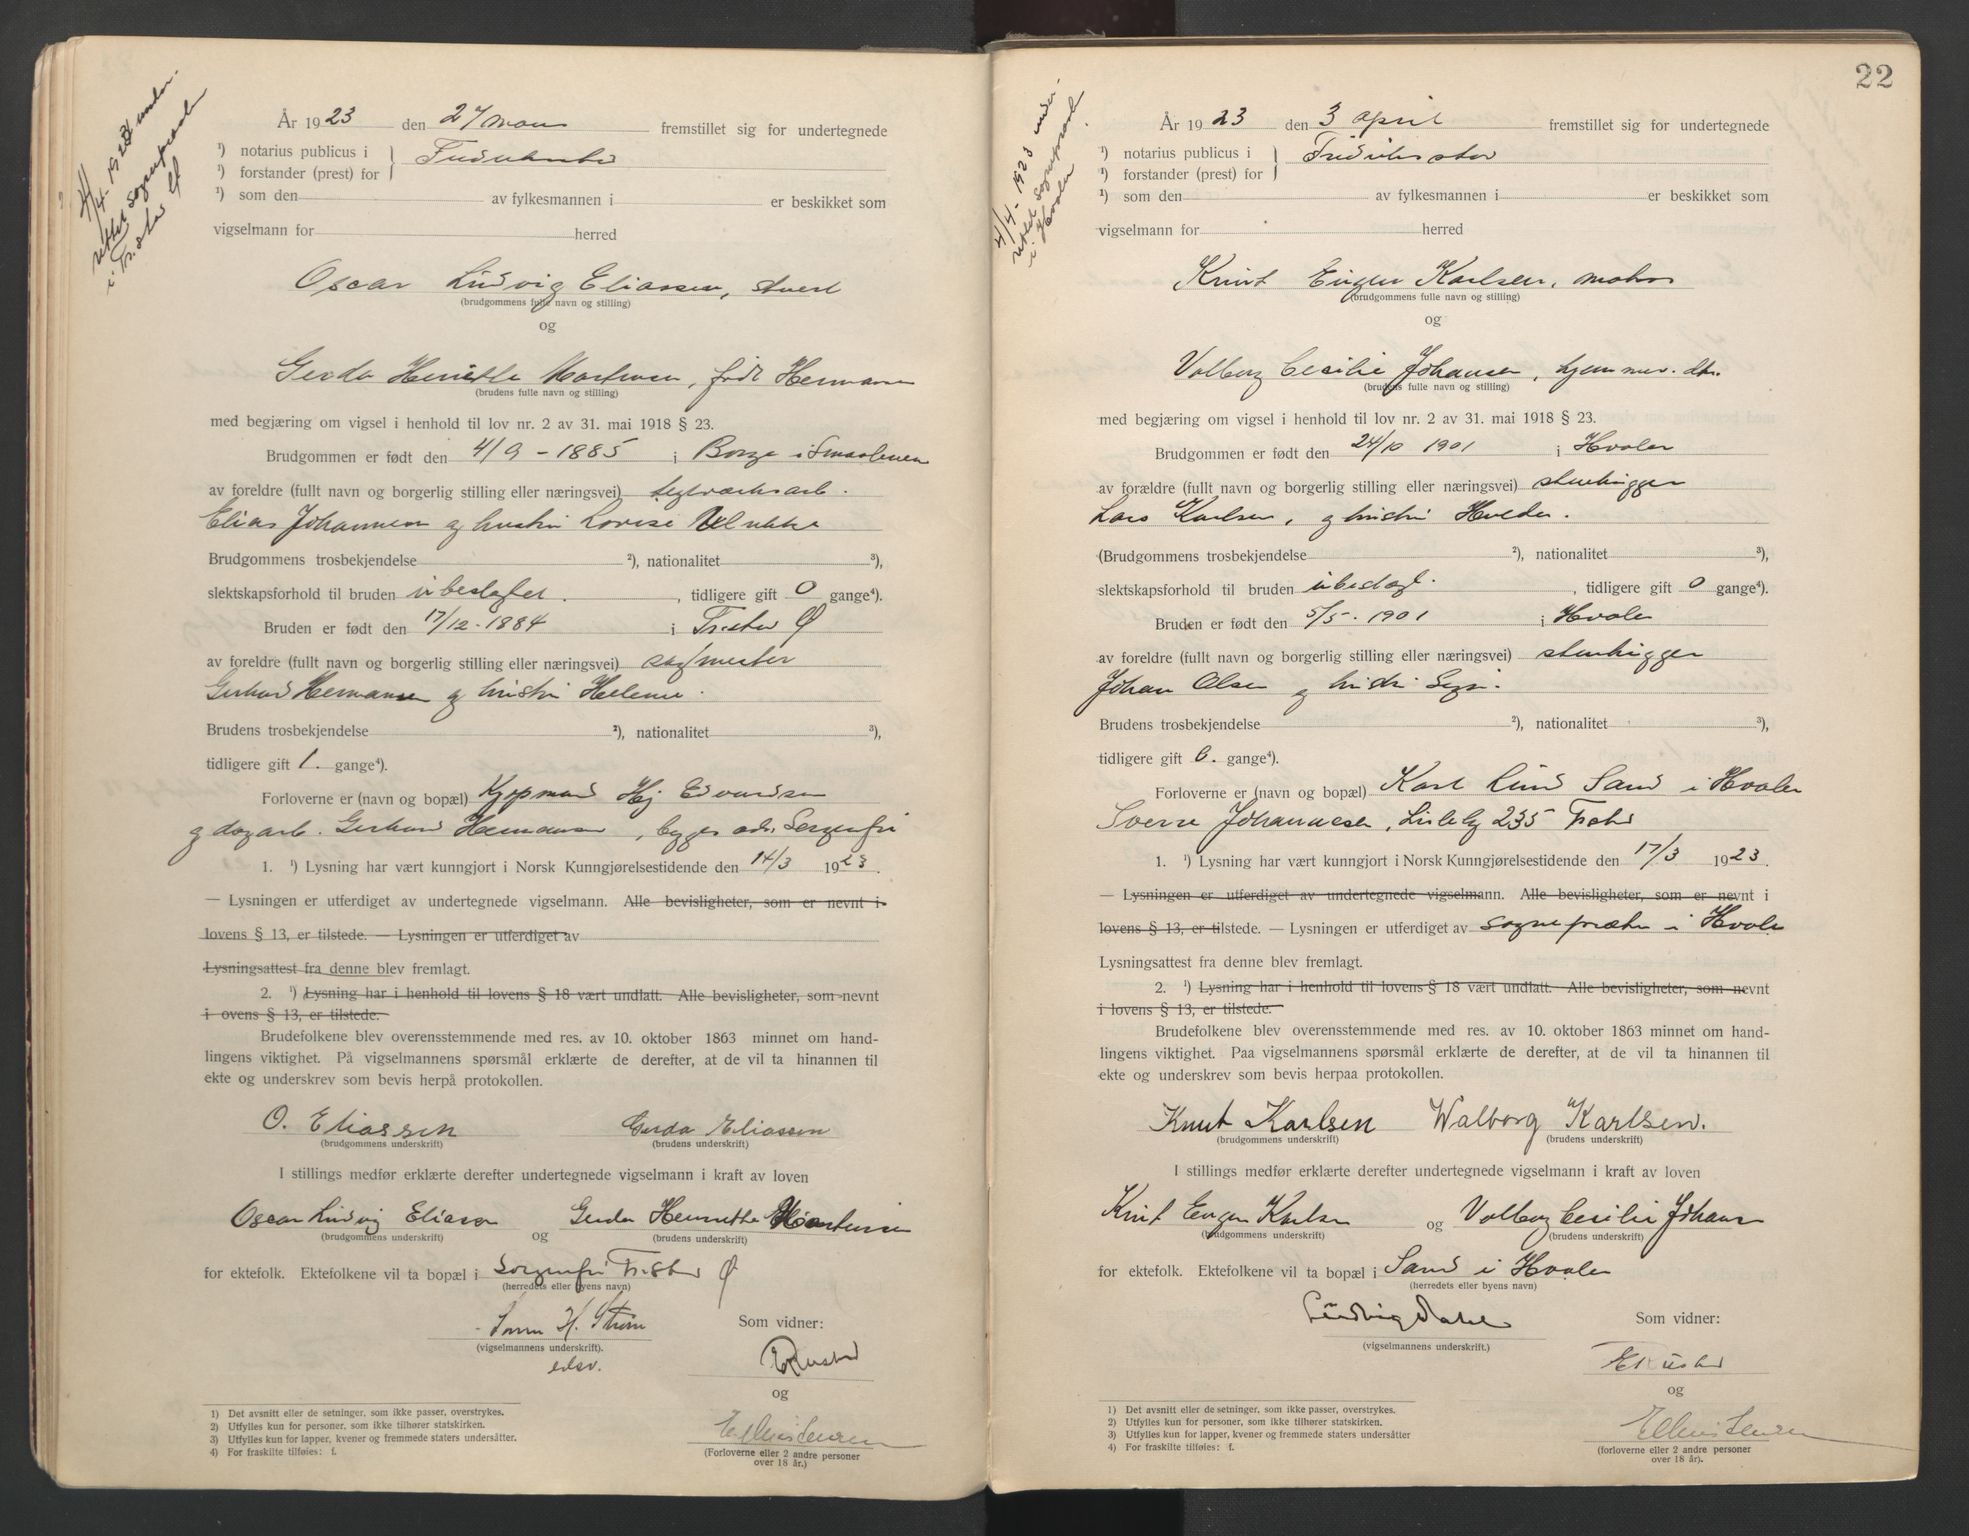 4/4-1923 under
rettet sogneprest
i Fr.stad
År 1923 den 27 mars fremstillet sig for undertegnede
¹) notarius publicus i } Fredrikstad
¹) forstander (prest) for
¹) som den av fylkesmannen i er beskikket som
vigselmann for herred
Oscar Ludvig Eliassen,
(brudgommens fulle navn og stilling)
og
Gerda Henriette Mortensen, født Hermansen
(brudens fulle navn og stilling)
med begjæring om vigsel i henhold til lov nr. 2 av 31. mai 1918 § 23.
Brudgommen er født den 4/9-1885 i Borge i Smaalenen
av foreldre (fullt navn og borgerlig stilling eller næringsvei) teglværksarb.
Elias Johannesen og hustru Lovise
Brudgommens trosbekjendelse ²), nationalitet ³),
slektskapsforhold til bruden ubeslegtet. , tidligere gift 0 gange⁴).
Bruden er født den 17/12-1884 i Fr.stad Ø
av foreldre (fullt navn og borgerlig stilling eller næringsvei) sagmester
Gerhard Hermansen og hustru Helene.
Brudens trosbekjendelse ²), nationalitet ³),
tidligere gift 1. gange⁴).
Forloverne er (navn og bopæl) Kjøpmand Hj Edvardsen
og dagarb. Gerhard Hermansen, begges adr. Sorgenfri
1. ¹) Lysning har vært kunngjort i Norsk Kunngjørelsestidende den 14/3 1923.
— Lysningen er utferdiget av undertegnede vigselmann. Alle bevisligheter, som er nevnt i
lovens § 13, er tilstede. — Lysningen er utferdiget av
Lysningsattest fra denne blev fremlagt.
2. ¹) Lysning har i henhold til lovens § 18 vært undlatt. Alle bevisligheter, som nevnt
i ovens § 13, er tilstede.
Brudefolkene blev overensstemmende med res. av 10. oktober 1863 minnet om hand-
lingens viktighet. På vigselmannens spørsmål erklærte de derefter, at de vil ta hinannen til
ekte og underskrev som bevis herpå protokollen.
O. Eliassen Gerda Eliassen
(brudgommens underskrift) (brudens underskrift)
I stillings medfør erklærte derefter undertegnede vigselmann i kraft av loven
Oscar Ludvig Eliassen og Gerda Henriette Mortensen
(brudgommens underskrift) (brudens underskrift)
for ektefolk. Ektefolkene vil ta bopæl i Sorgenfri Fr.stad Ø
(herredets eller byens navn)
H. Strøm Som vidner:
(vigselmannens underskrift).
edsv.
og
E Christensen
1) Det avsnitt eller de setninger, som ikke passer, overstrykes.
2) Utfylles kun for personer, som ikke tilhører statskirken.
3) Utfylles kun for lapper, kvener og fremmede staters undersåtter.
4) For fraskilte tilføies: f.
(Forloverne eller 2 andre personer
over 18 år.)
22
4/4-1923 under
rettet sogneprest
i Hvaler
År 1923 den 3 april fremstillet sig for undertegnede
¹) notarius publicus i } Fredrikstad
¹) forstander (prest) for
¹) som den av fylkesmannen i er beskikket som
vigselmann for herred
Knut Eugen Karlsen,
(brudgommens fulle navn og stilling)
og
Valborg Cecilie Johansen, hjemmev. dtr.
(brudens fulle navn og stilling)
med begjæring om vigsel i henhold til lov nr. 2 av 31. mai 1918 § 23.
Brudgommen er født den 24/10 1901 i Hvaler
av forældre (fullt navn og borgerlig stilling eller næringsvei) stenhugger
Lars Karlsen, og hustru Hulda.
(Brudgommens trosbekjendelse ²), nationalitet ³),
slektskapsforhold til bruden ubeslægt. , tidligere gift 0 gange⁴).
Bruden er født den 5/5-1901 i Hvaler
av foreldre (fullt navn og borgerlig stilling eller næringsvei) stenhugger
Johan Olsen og hustru
Brudens trosbekjendelse ²), nationalitet ³),
tidligere gift 0. gange⁴).
Forloverne er (navn og bopæl) Karl Lund Sand i Hvaler
Sverre Johannesen, Lisleby 235 Fr.stad
1. ¹) Lysning har vært kunngjort i Norsk Kunngjørelsestidende den 17/3 1923.
— Lysningen er utferdiget av undertegnede vigselmann. Alle bevisligheter, som er nevnt i
lovens § 13, er tilstede. — Lysningen er utferdiget av sognepræsten i Hvaler
Lysningsattest fra denne blev fremlagt.
2. ¹) Lysning har i henhold til lovens § 18 vært undlatt. Alle bevisligheter, som nevnt
i lovens § 13, er tilstede.
Brudefolkene blev overensstemmende med res. av 10. oktober 1863 minnet om hand-
lingens viktighet. Paa vigselmannens spørsmål erklærte de derefter, at de vil ta hinannen til
ekte og underskrev som bevis herpaa protokollen.
Knut Karlsen Walborg Karlsen.
(brudgommens underskrift) (brudens underskrift)
I stillings medfør erklærte derefter undertegnede vigselmann i kraft av loven
Knut Eugen Karlsen og Valborg Cecilie Johansen
(brudgommens underskrift) (brudens underskrift)
for ektefolk. Ektefolkene vil ta bopæl i Sand i Hvaler
(herredets eller byens navn)
Ludvig Dahl Som vidner:
(vigselmannens underskrift.)
og
E Christensen
1) Det avsnitt eller de setninger, som ikke passer, overstrykes.
2) Utfylles kun for personer, som ikke tilhører statskirken.
3) Utfylles kun for lapper, kvener og fremmede staters undersåtter
4) For fraskilte tilføies: f.
(forloverne eller 2 andre personer
over 18 år).